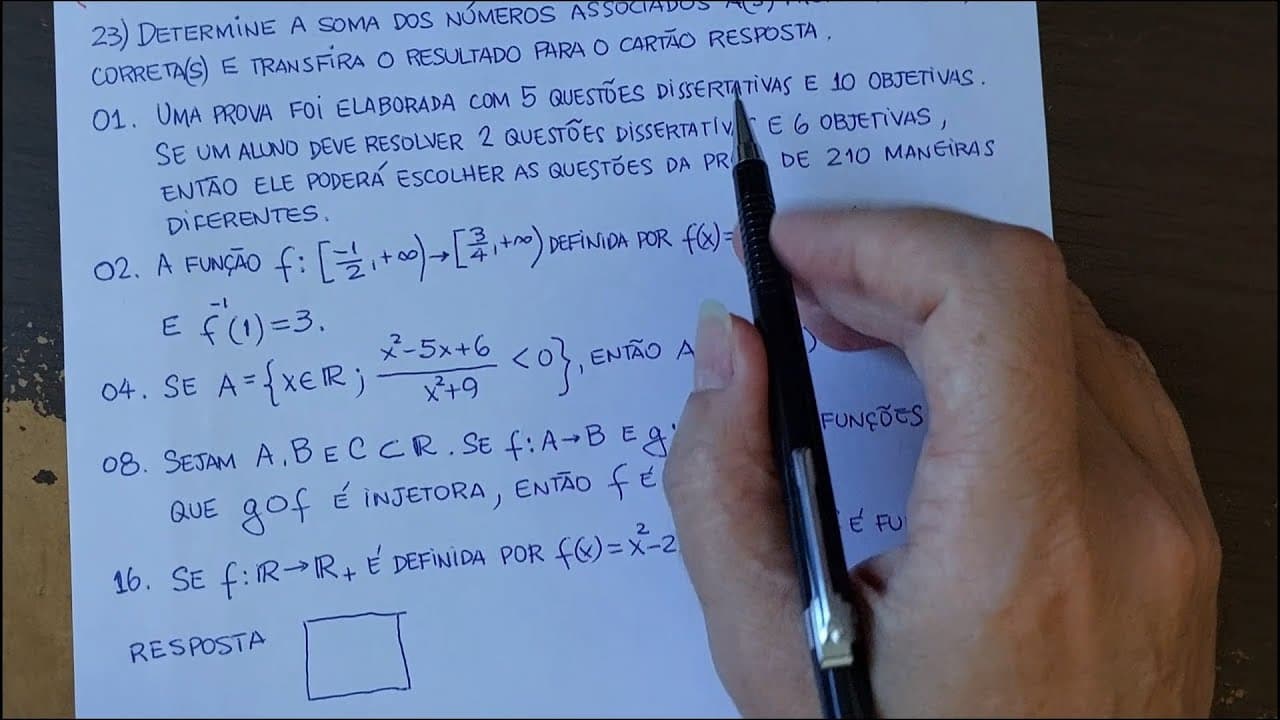 23) DETERMINE A SOMA DOS NÚMEROS ASSOCIADOS
CORRETA(S) E TRANSFIRA O RESULTADO PARA O CARTÃO RESPOSTA.
01. UMA PROVA FOI ELABORADA COM 5 QUESTÕES DISSERTATIVAS E 10 OBJETIVAS.
SE UM ALUNO DEVE RESOLVER 2 QUESTÕES DISSERTATIV E 6 OBJETIVAS,
ENTÃO ELE PODERÁ ESCOLHER AS QUESTÕES DA PR DE 210 MANEIRAS
DIFERENTES.
02. A FUNÇÃO f: [-1/2, +∞) → [3/4, +∞) DEFINIDA POR f(x)=
E f⁻¹(1)=3.
04. SE A = {x∈ℝ; (x²-5x+6)/(x²+9) < 0}, ENTÃO A )
08. SEJAM A, B E C ⊂ ℝ. SE f: A→B E g: FUNÇÕES
QUE gof É INJETORA, ENTÃO f É
16. SE f: ℝ→ℝ+ É DEFINIDA POR f(x)=x²-2 É FU
RESPOSTA